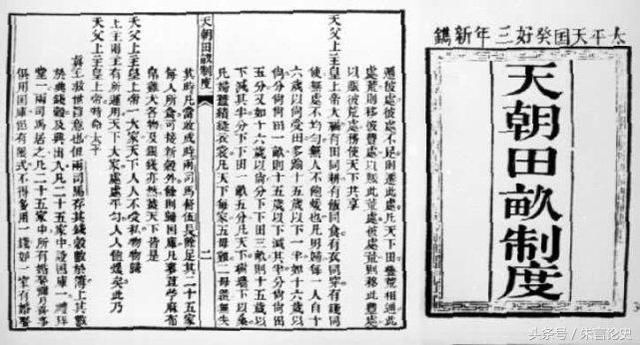 太平天囯癸好三年新鐫
天朝田畝制度
遷彼處彼處不足則遷此處凡天下田豐荒相通此
處荒則移彼豐處以賑此荒處彼處荒則移此豐處
以賑彼荒處務使天下共享
天父上主皇上帝大福有田同耕有飯同食有衣同穿有錢同
使無處不均勻無人不飽煖也凡男婦每一人自十
六歲以尚受田多踰十五歲以下一半如十六歲以
尚分尚尚田一畝則十五歲以下減其半分尚尚田
五分又如十六歲以尚分下下田三畝則十五歲以
下減其半分下下田一畝五分凡天下樹墻下以桑
凡婦蠶績縫衣裳凡天下每家五母雞二母彘無失
天朝田畝制度
二
其時凡當收成時兩司馬督伍長除足其二十五家
每人所食可接新穀外餘則歸囯庫凡麥荳苧麻布
帛雞犬各物及銀錢亦然蓋天下皆是
天父上主皇上帝一大家天下人人不受私物物歸
上主則主有所運用天下大家處處平勻人人飽煖矣此乃
天父上主皇上帝特命太平
真主救世旨意也但兩司馬存其錢穀數於簿上其數
於典錢穀及典出入凡二十五家中設囯庫一禮拜
堂一兩司馬居之凡二十五家中所有婚娶彌月喜事
俱用囯庫但有限式不得多用一錢如一家有婚娶
头条号 / 朱言论史